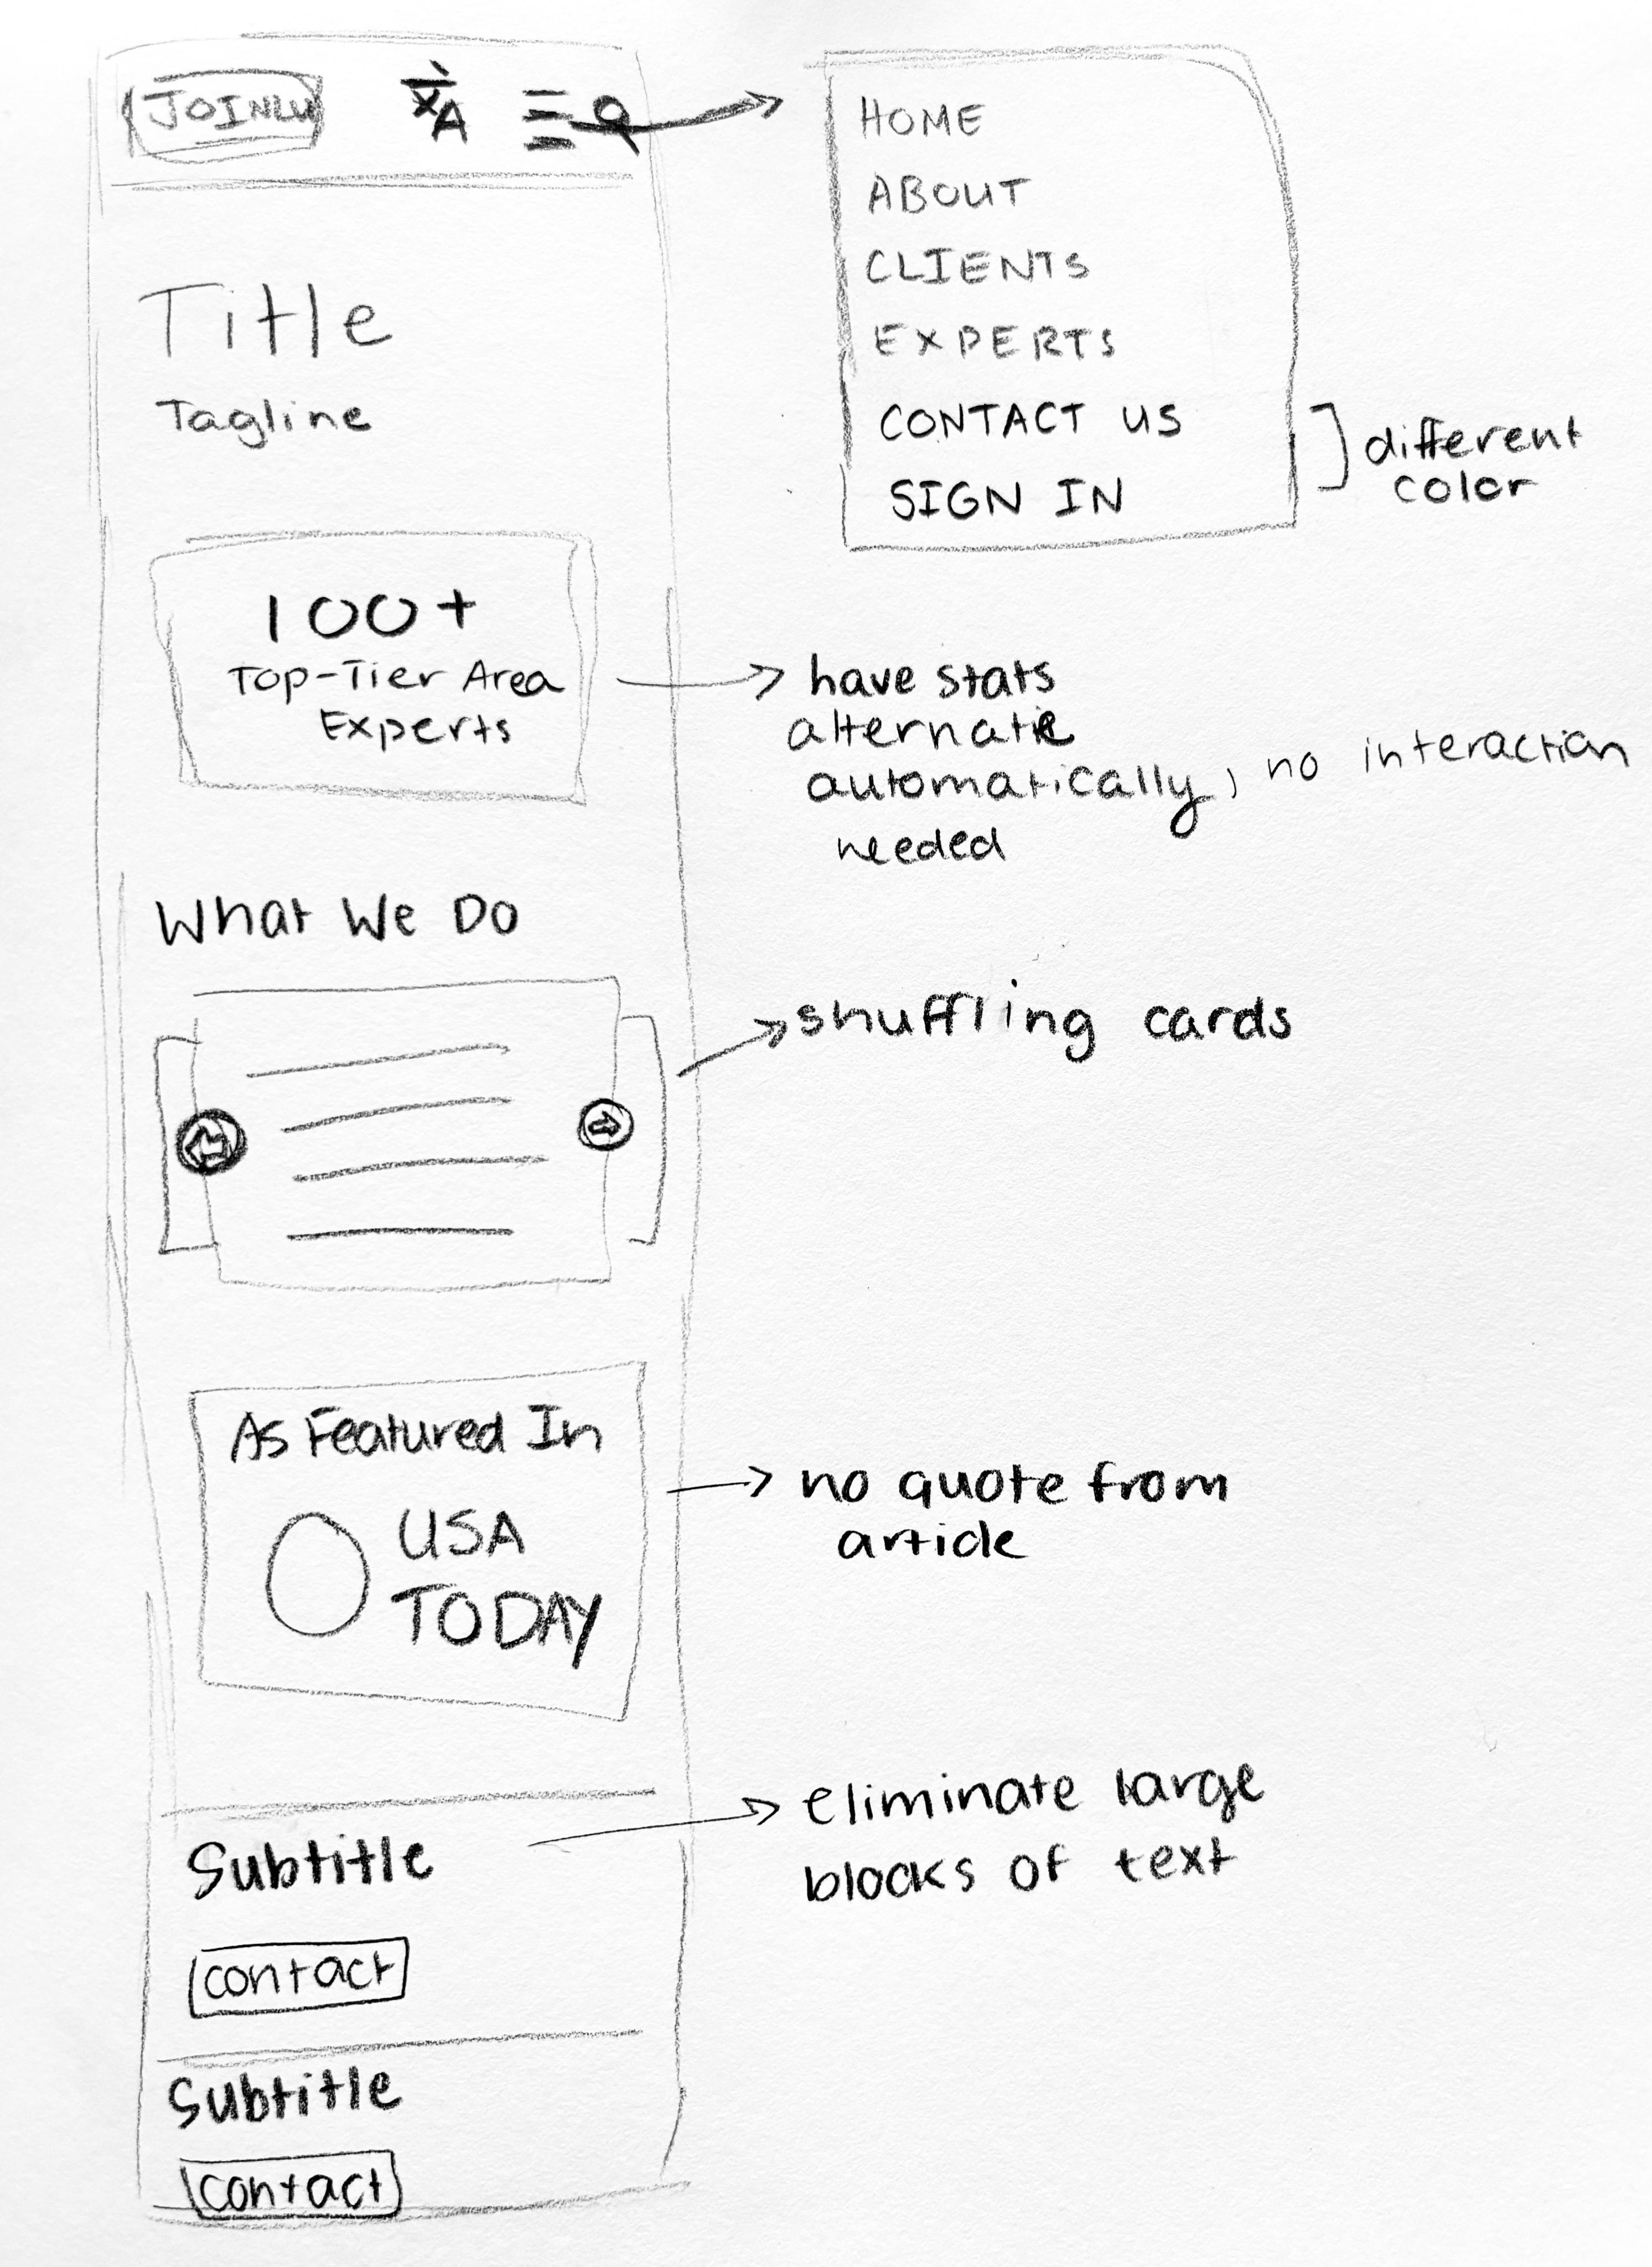 JOINLU
文A
HOME
ABOUT
CLIENTS
EXPERTS
CONTACT US
SIGN IN
different
color
Title
Tagline
100+
Top-Tier Area
Experts
have stats
alternate
automatically, no interaction
needed
What We Do
shuffling cards
As Featured In
USA
TODAY
no quote from
article
eliminate large
blocks of text
Subtitle
contact
Subtitle
contact